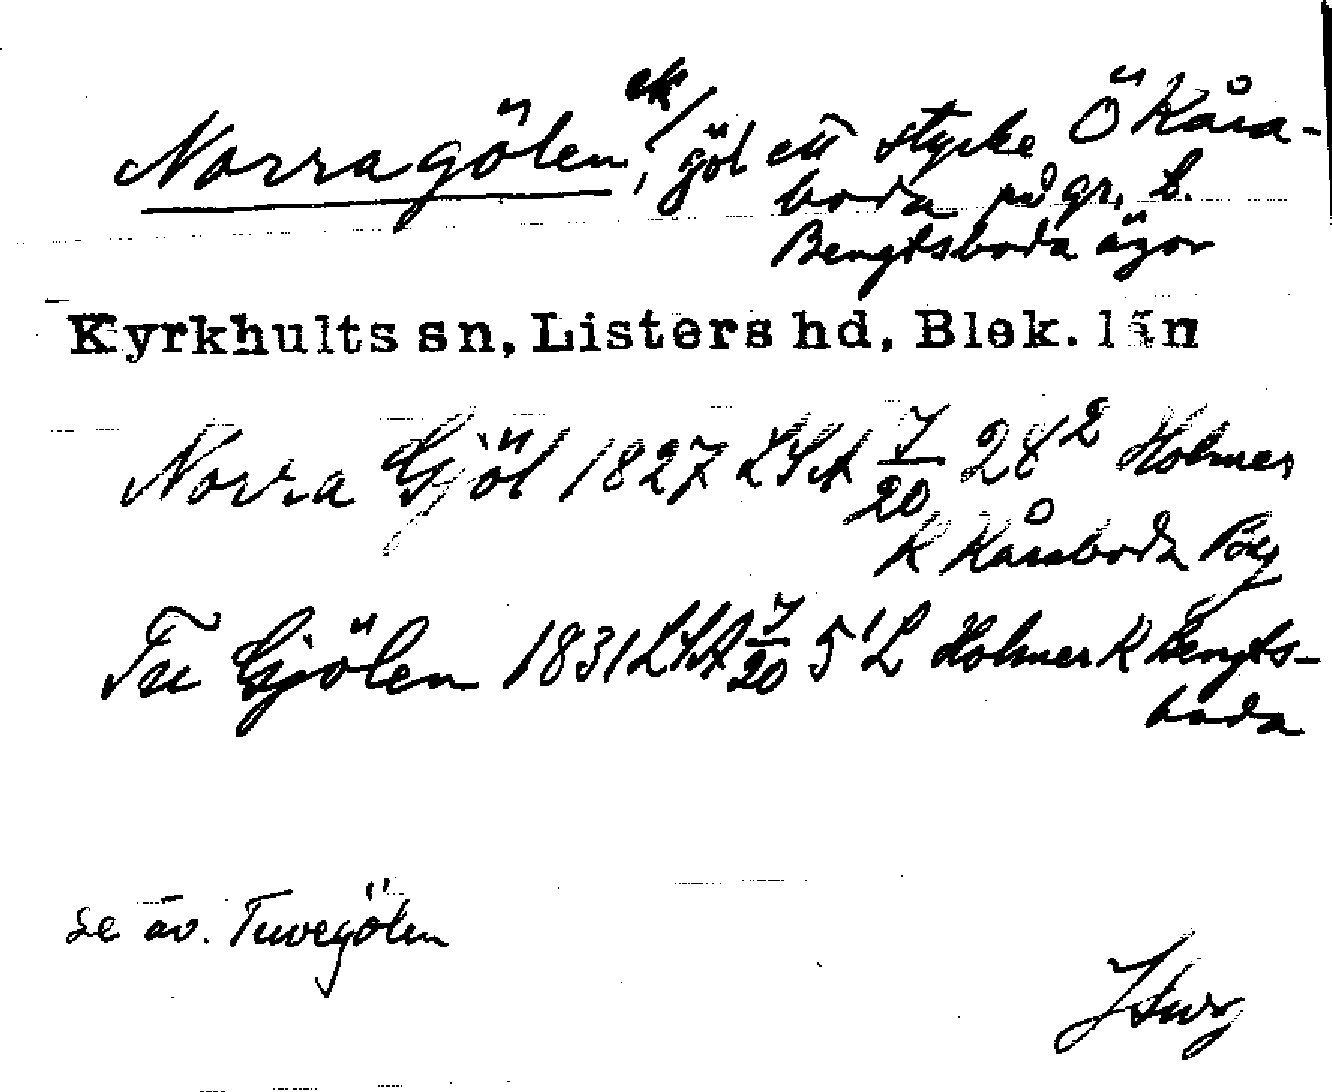 Norragölen, ek/ göl ett stycke Ö Kåra-
boda på gr. t.
Bengtsboda ägor
Kyrkhults sn, Listers hd, Blek. län
Norra Gjöl 1827 LSA 7/20 28² Holmer
K Kåraboda By
Tu Gjölen 1831 LSA 7/20 5' L Holmer K Bengts-
boda
Se äv. Tuvegölen